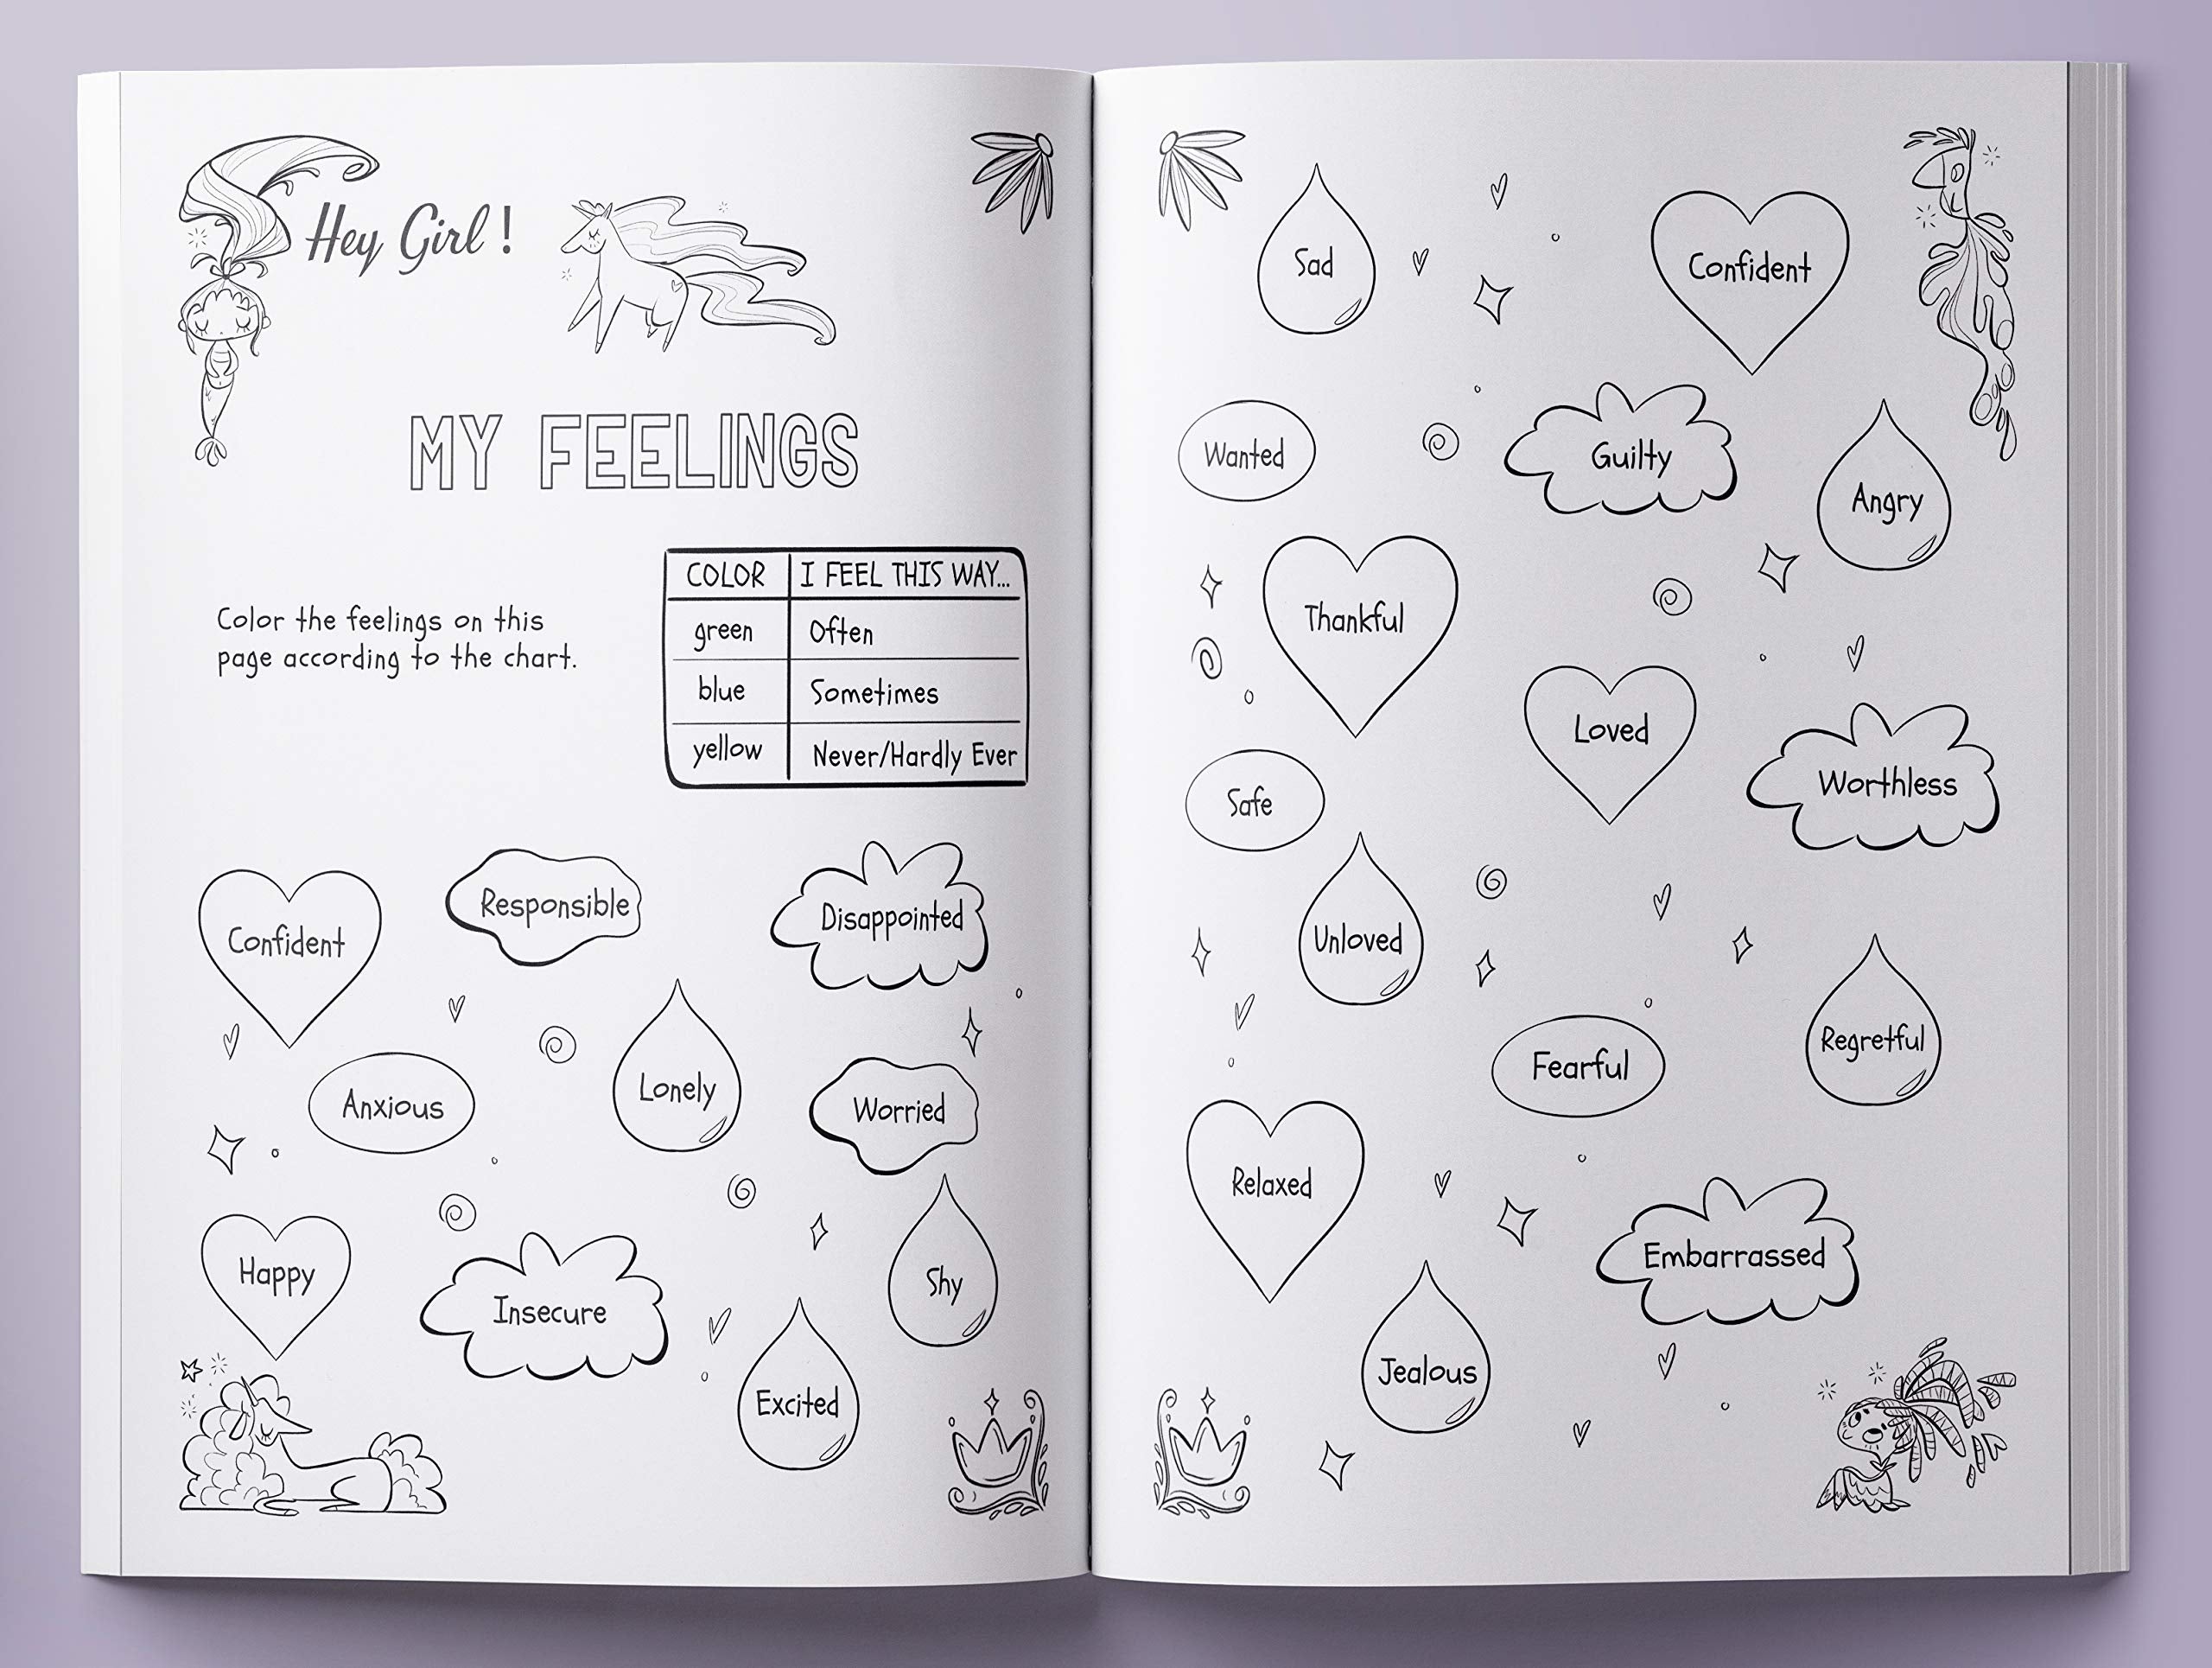 Hey Girl !
MY FEELINGS
Color the feelings on this
page according to the chart.
COLOR I FEEL THIS WAY...
green Often
blue Sometimes
yellow Never/Hardly Ever
Confident
Responsible
Disappointed
Anxious
Lonely
Worried
Happy
Insecure
Shy
Excited
Sad
Confident
Wanted
Guilty
Angry
Thankful
Loved
Worthless
Safe
Unloved
Fearful
Regretful
Relaxed
Embarrassed
Jealous